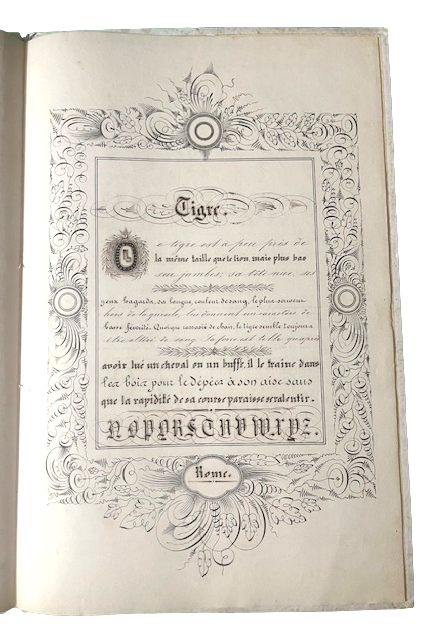 Tigre.
Le tigre est à peu près de
la même taille que le lion, mais plus bas
sur jambes, sa tête nue, ses
yeux hagards, sa langue, couleur de sang, le plus souvent
hors de la gueule, lui donnent un caractère de
basse férocité. Quoique rassasié de chair, le tigre semble toujours
être altéré de sang. Sa force est telle qu'après
avoir tué un cheval ou un buffle, il le traine dans
les bois pour le dépécer à son aise sans
que la rapidité de sa course paraisse se ralentir.
N.O.P.Q.R.S.T.U.V.W.X.Y.Z.
Rome.